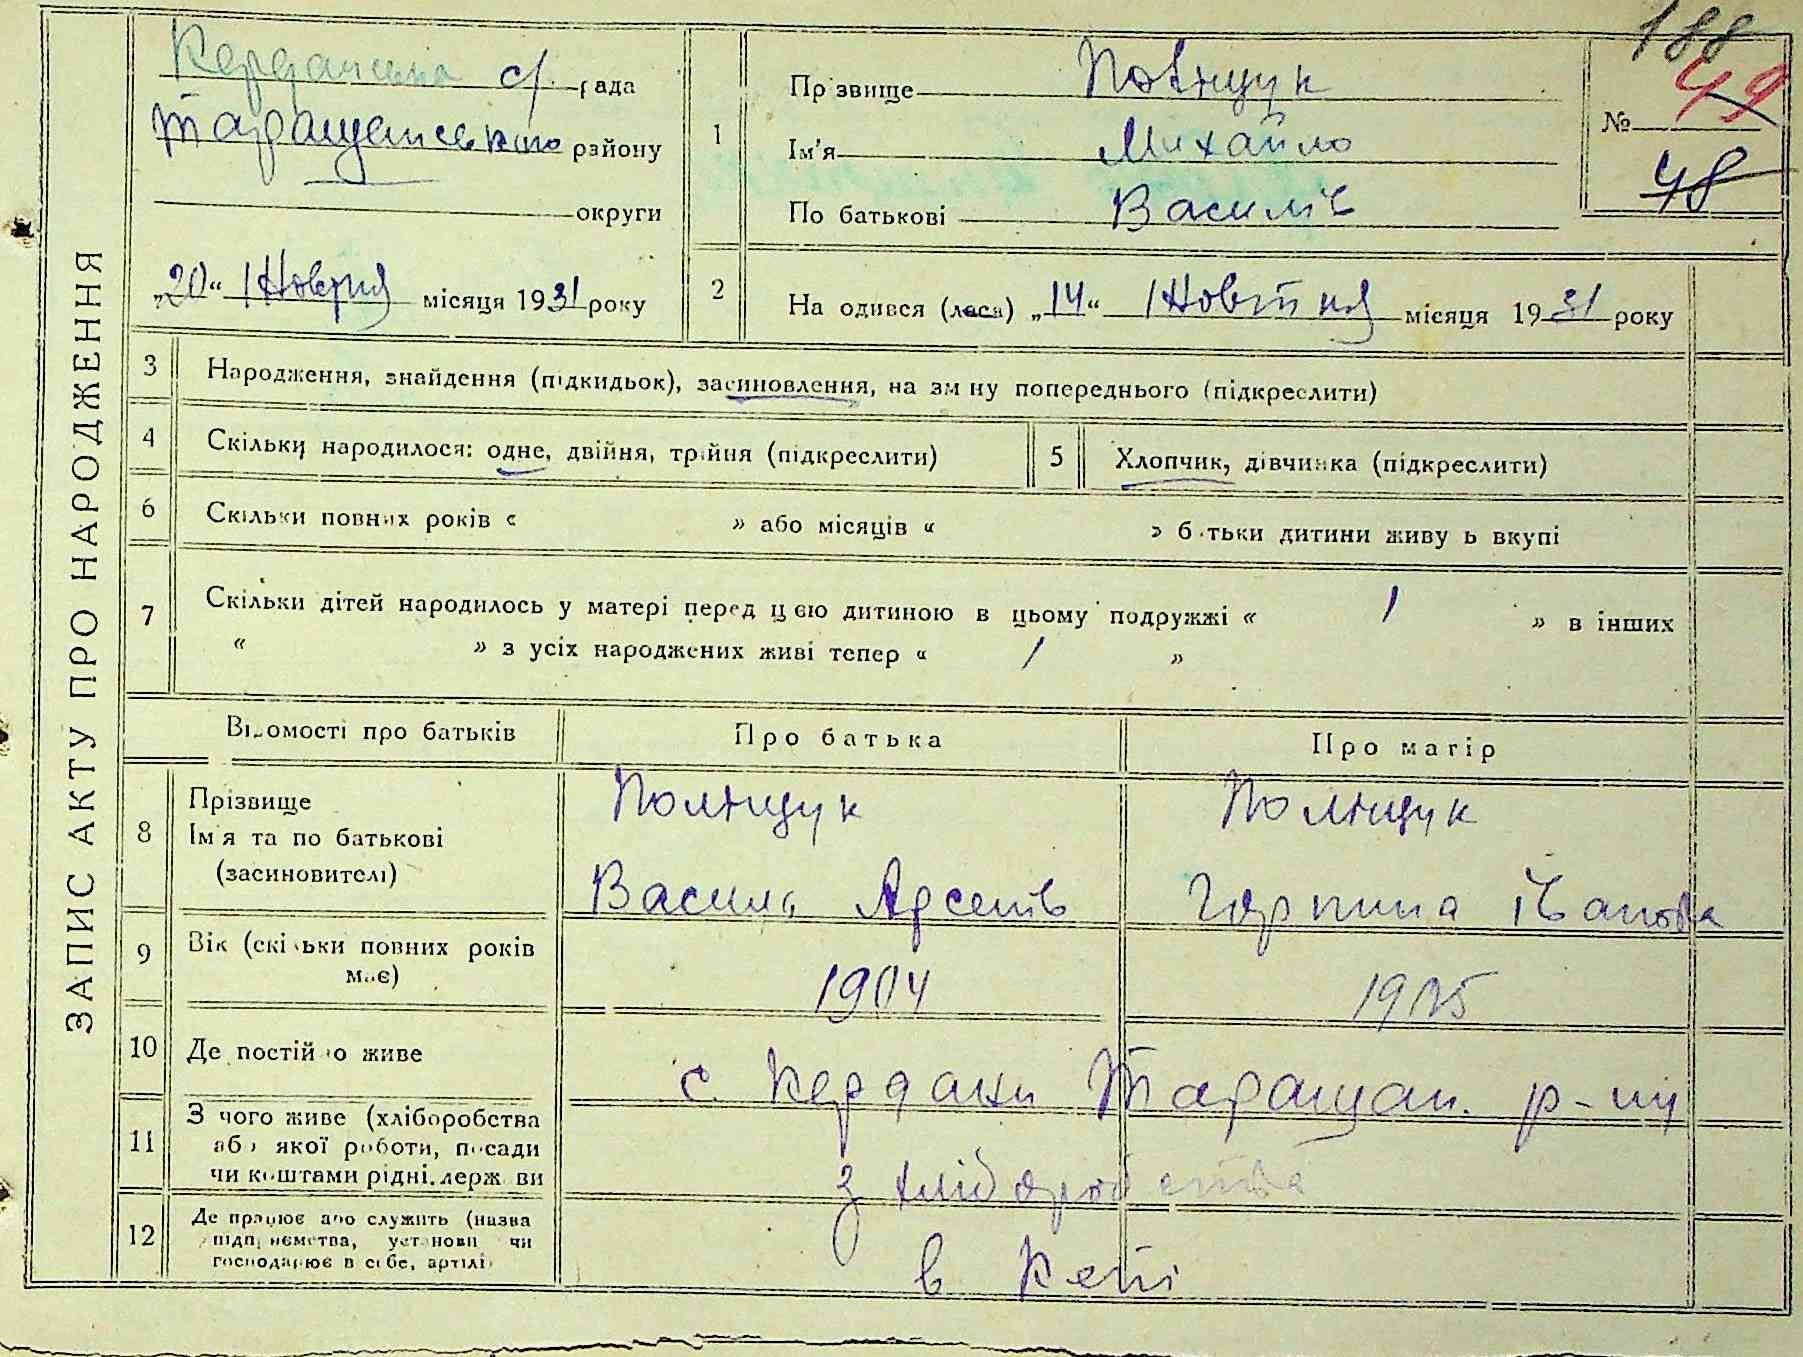 ЗАПИС АКТУ ПРО НАРОДЖЕННЯ
Керданська с/рада
Таращанського району
округи
„20“ Новтня місяця 1931 року
1
Прізвище Поліщук
Ім'я Михайло
По батькові Василів
188
49
№
48
2
На одився (лася) „14“ Новтня місяця 1931 року
3 Народження, знайдення (підкидьок), засиновлення, на зміну попереднього (підкреслити)
4 Скільки народилося: одне, двійня, трійня (підкреслити)
5 Хлопчик, дівчинка (підкреслити)
6 Скільки повних років « » або місяців « » батьки дитини живуть вкупі
7 Скільки дітей народилось у матері перед цею дитиною в цьому подружжі « 1 » в інших
« » з усіх народжених живі тепер « 1 »
Відомості про батьків Про батька Про матір
8 Прізвище Поліщук Поліщук
Ім'я та по батькові
(засиновителі) Василь Арсенів Горпина Іванова
9 Вік (скільки повних років
має) 1904 1905
10 Де постійно живе с. Кердани Таращан. р-ну
11 З чого живе (хліборобства
або якої роботи, посади
чи коштами рідні, держави з хліборобства
12 Де працює або служить (назва
підприємства, установи чи
господарює в себе, артілі) в